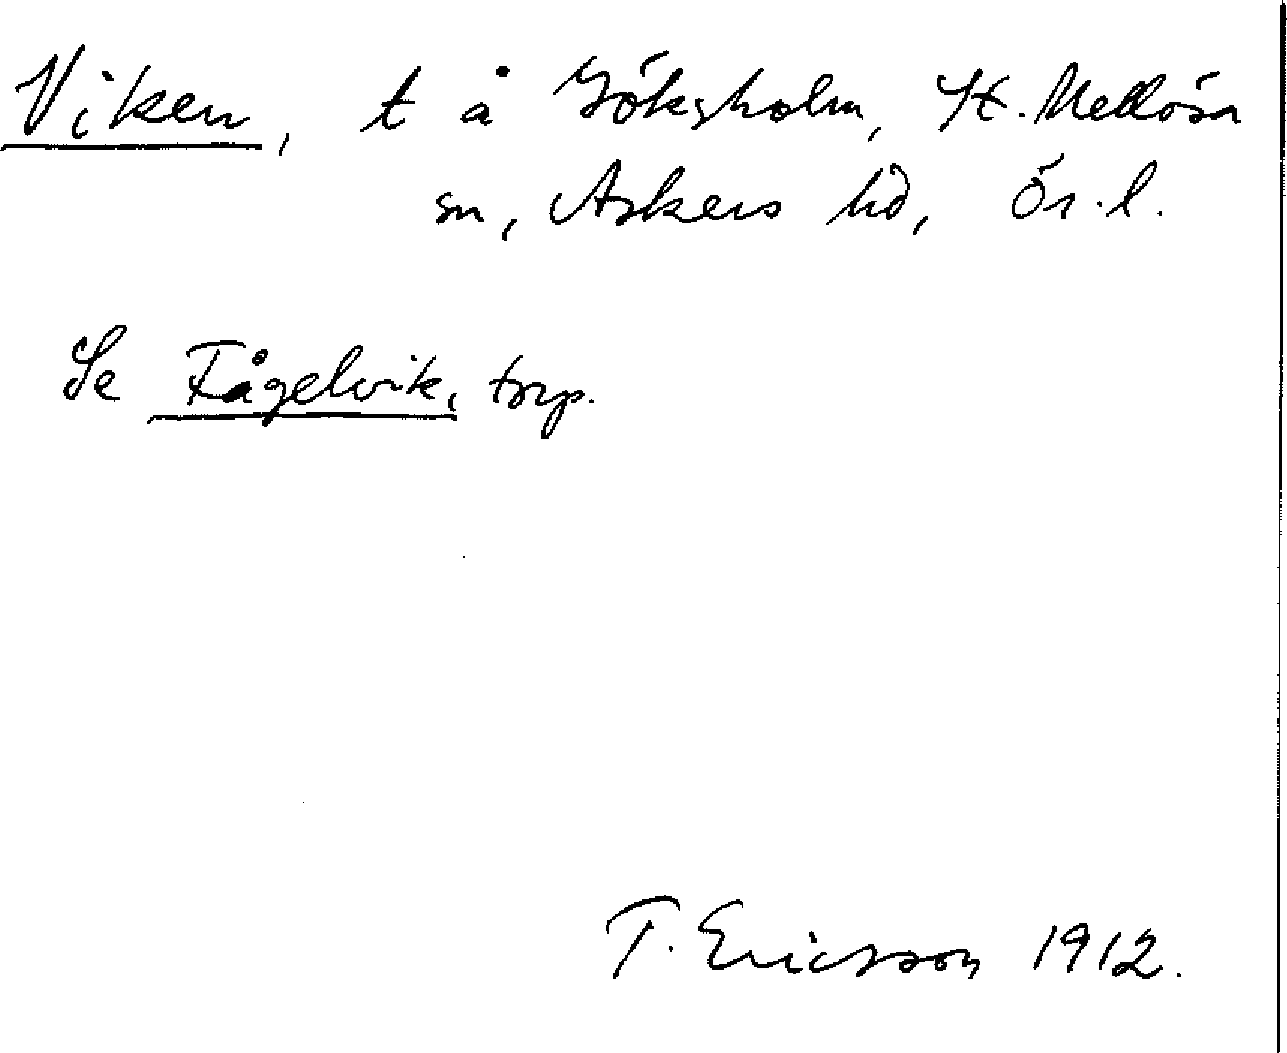 Viken, t å Göksholm, St. Mellösa
sn, Askers hd, Ör. l.
Se Fågelvik, torp.
T. Ericsson 1912.